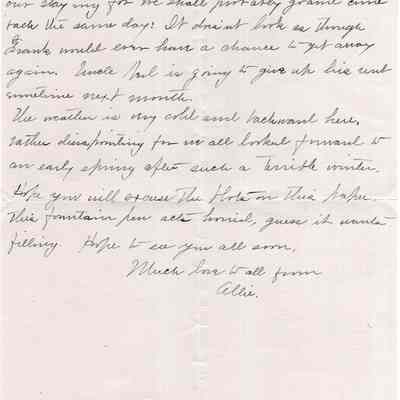 our staying for we shall probably go and come
back the same day. It doesn't look as though
Frank would ever have a chance to get away
again. Uncle is going to give up his rent
sometime next month.
The weather is very cold and backward here,
rather disappointing for we all looked forward to
an early spring after such a terrible winter.
Hope you will excuse the blots on this paper.
This fountain pen acts horrid, guess it wants
filling. Hope to see you all soon.
Much love to all from
Allie.